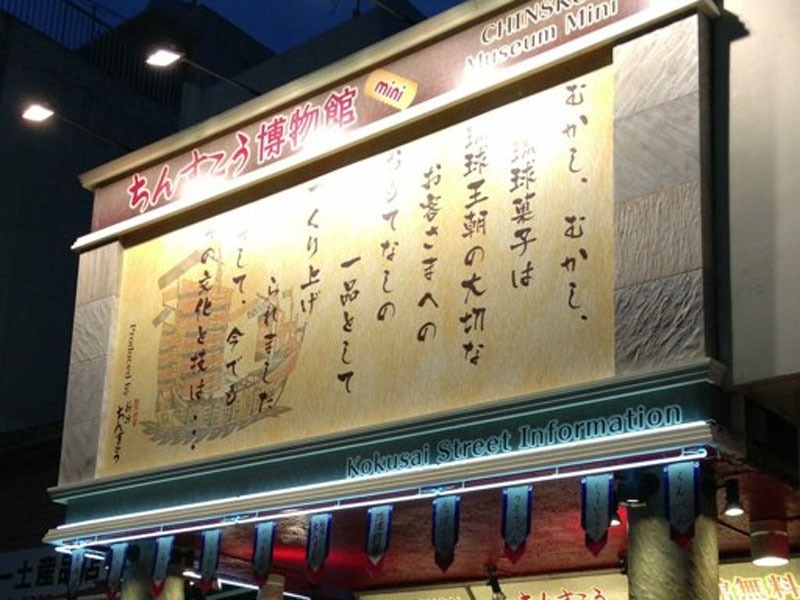 ちんすこう博物館 mini
CHINSKO
Museum Mini
むかし、むかし、
琉球菓子は
琉球王朝の大切な
お客さまへの
おもてなしの
一品として
つくり上げ
られました
そして、今でも
の文化と技は・・・
Produced by
ちんすこう
Kokusai Street Information
ちんすこう
無料
土産品店